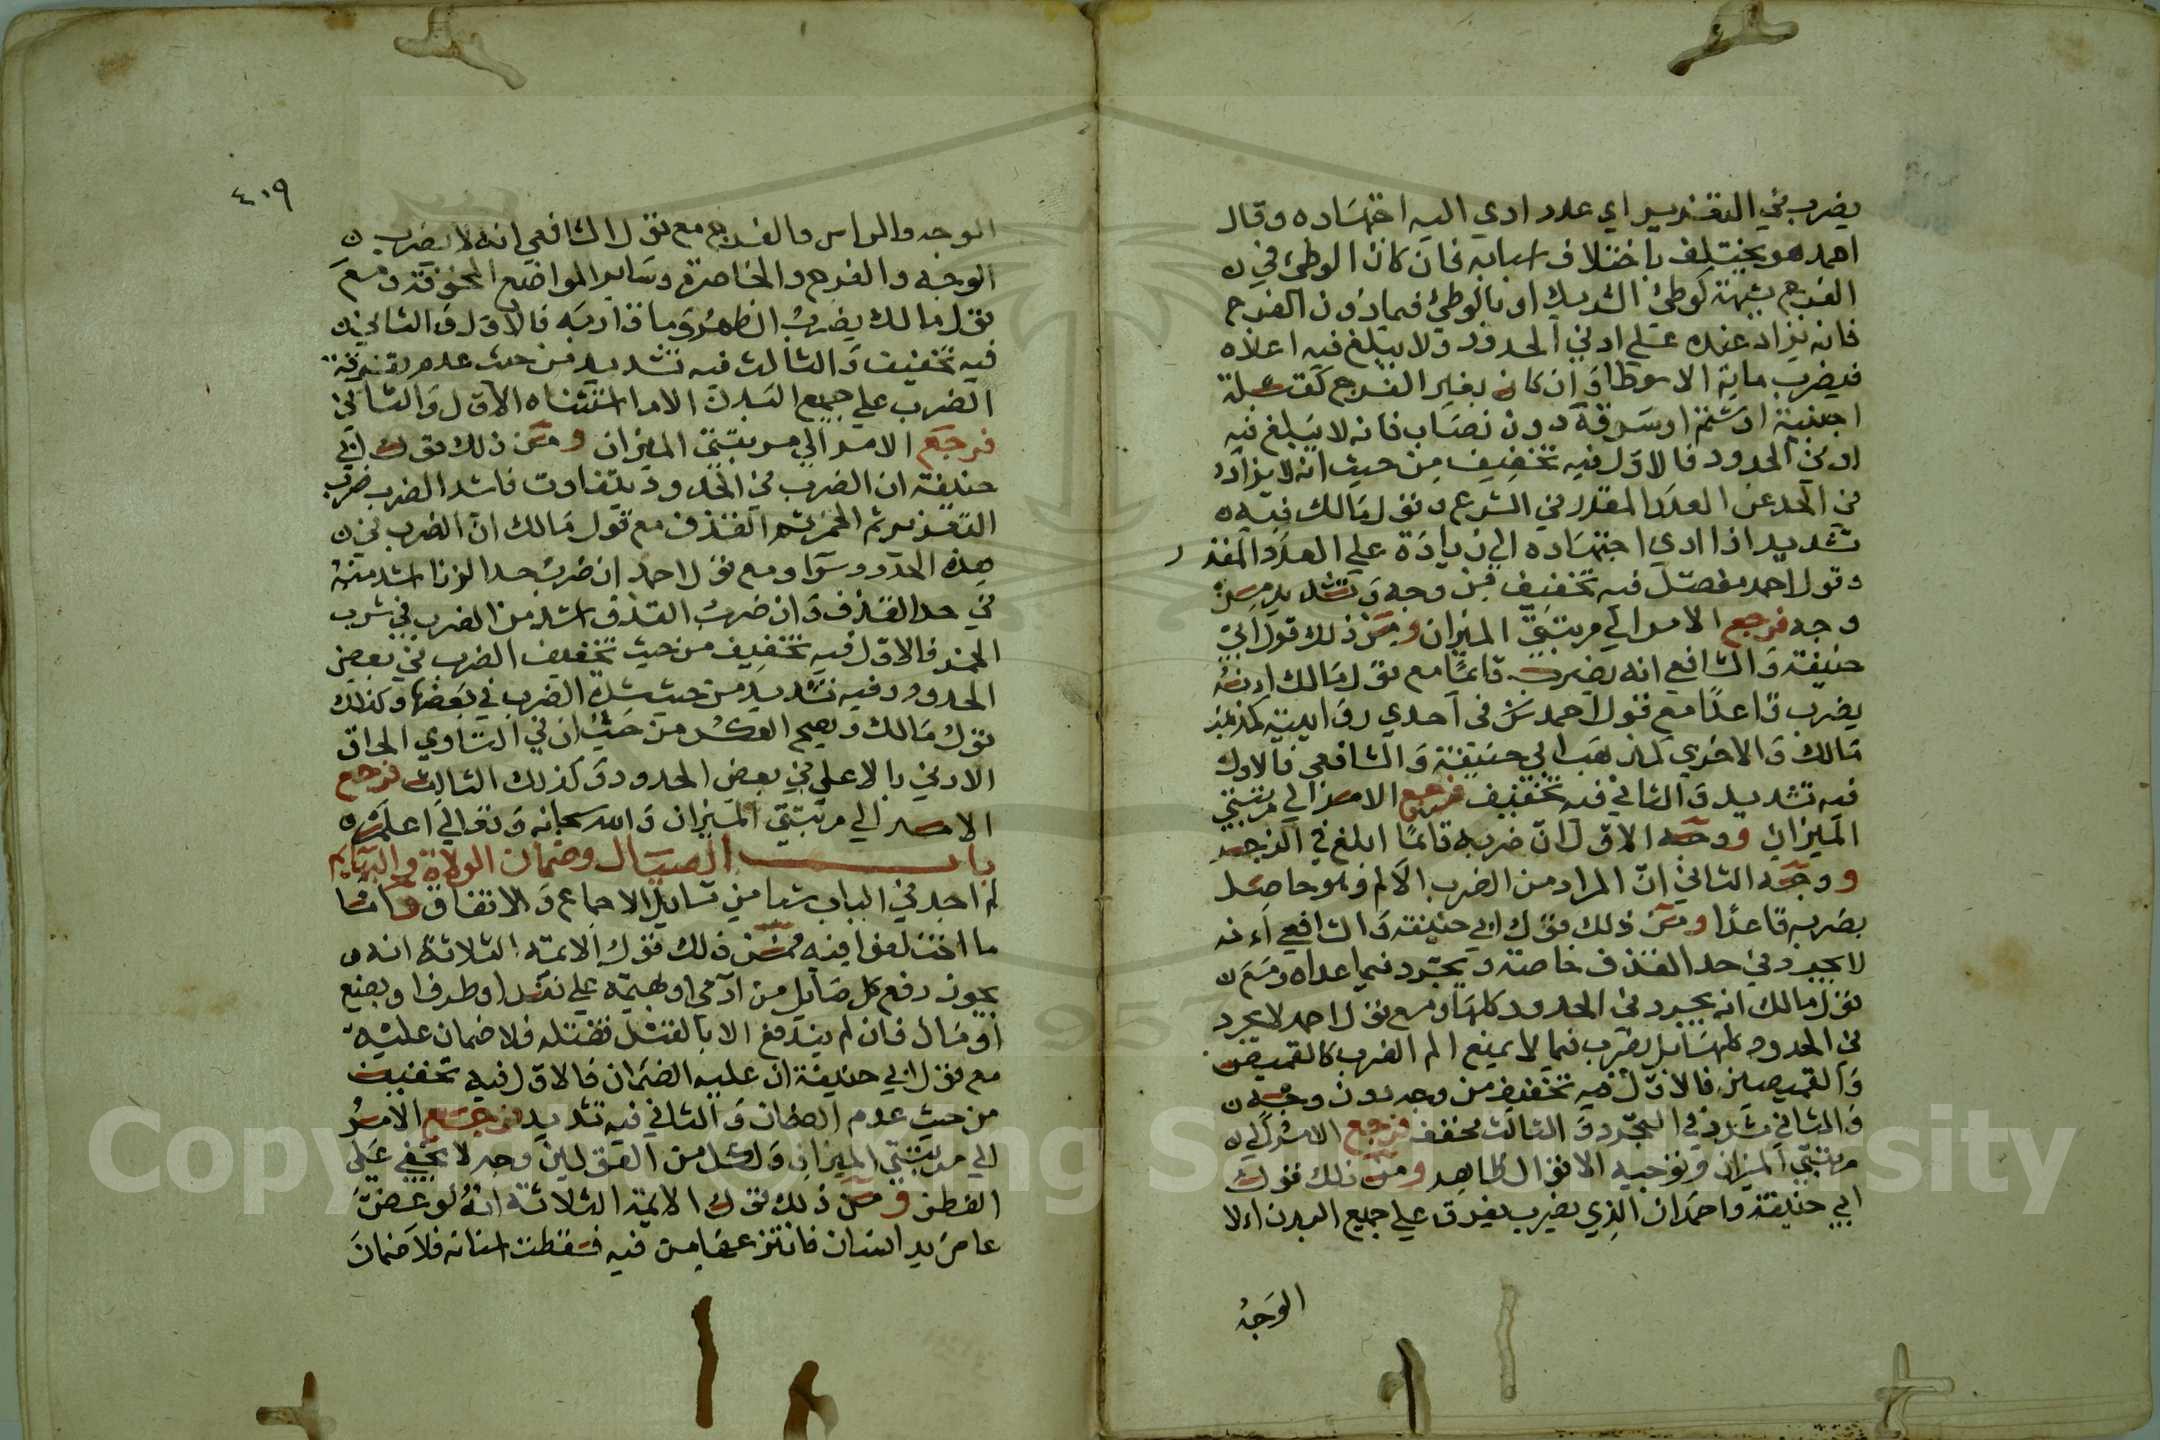 يضرب في التعزير اي عدد ادي اليه اجتهاده وقال
احمد هو يختلف باختلاف اسبابه فان كان الوطئ في
الفرج بشبهة كوطئ الشريك او بالوطئ فيما دون الفرج
فانه يزاد عنده علي ادني الحدود ولا يبلغ فيه اعلاه
فيضرب ماية الا سوطا وان كان بغير الفرج كقبلة
اجنبية او شتم او سرقة دون نصاب فانه لا يبلغ فيه
ادني الحدود فالاول فيه تخفيف من حيث انه لا يزاد
في الحد عن العدد المقدر في الشرع وقول مالك فيه
تشديد اذا ادي اجتهاده الي زيادة علي العدد المقدر
وقول احمد مفصل فيه تخفيف من وجه وتشديد من
وجه فرجع الامر الي مرتبتي الميزان ومن ذلك قول ابي
حنيفة والشافعي انه يضرب قائما مع قول مالك انه
يضرب قاعدا مع قول احمد في احدي روايتيه كمذهب
مالك والاخري كمذهب ابي حنيفة والشافعي فالاول
فيه تشديد والثاني فيه تخفيف فرجع الامر الي مرتبتي
الميزان ووجه الاول ان ضربه قائما ابلغ في الزجر
ووجه الثاني ان المراد من الضرب الالم وهو حاصل
بضربه قاعدا ومن ذلك قول ابي حنيفة والشافعي انه
لا يجرد في حد القذف خاصة ويجرد فيما عداه ومع
قول مالك انه يجرد في الحدود كلها ومع قول احمد لا يجرد
في الحدود كلها بل يضرب فيما لا يمنع الم الضرب كالقميص
والقميصين فالاول فيه تخفيف من وجه دون وجه
والثاني مشدد في التجرد والثالث مخفف فرجع الامر الي
مرتبتي الميزان وتوجيه الاقوال ظاهر ومن ذلك قول
ابي حنيفة واحمد ان الذي يضرب يفرق علي جميع البدن الا
الوجه
٤١٩
الوجه والراس والفرج مع قول الشافعي انه لا يضرب
الوجه والفرج والخاصرة وساير المواضع المخوفة ومع
قول مالك يضرب الظهر وما قاربه فالاول والثاني
فيه تخفيف والثالث فيه تشديد من حيث عدم تفرقة
الضرب علي جميع البدن الا ما استثناه الاول والثاني
فرجع الامر الي مرتبتي الميزان ومن ذلك قول ابي
حنيفة ان الضرب في الحدود يتفاوت فاشد الضرب ضرب
التعزير ثم الخمر ثم القذف مع قول مالك ان الضرب في
هذه الحدود سوآ ومع قول احمد ان ضرب حد الزنا اشد منه
في حد القذف وان ضرب القذف اشد من الضرب في شرب
الخمر فالاول فيه تخفيف من حيث تخفيف الضرب في بعض
الحدود وفيه تشديد من حيث شدة الضرب في بعضها وكذلك
قول مالك ويصح العكس من حيث ان في التساوي الحاق
الادني بالاعلي في بعض الحدود وكذلك الثالث فرجع
الامر الي مرتبتي الميزان والله سبحانه وتعالي اعلم
باب الصيال وضمان الولاة والبهايم
لم اجد في الباب شيا من مسايل الاجماع والاتفاق واما
ما اختلفوا فيه فمن ذلك قول الايمة الثلاثة انه
يجوز دفع كل صايل من آدمي او بهيمة علي نفس او طرف او بضع
او مال فان لم يندفع الا بالقتل فقتله فلا ضمان عليه
مع قول ابي حنيفة ان عليه الضمان فالاول فيه تخفيف
من حيث عدم الضمان والثاني فيه تشديد فرجع الامر
الي مرتبتي الميزان ولكل من القولين وجه لا يخفي علي
الفطن ومن ذلك قول الايمة الثلاثة انه لو عض
عاض يد انسان فانتزعها من فيه فسقطت اسنانه فلا ضمان